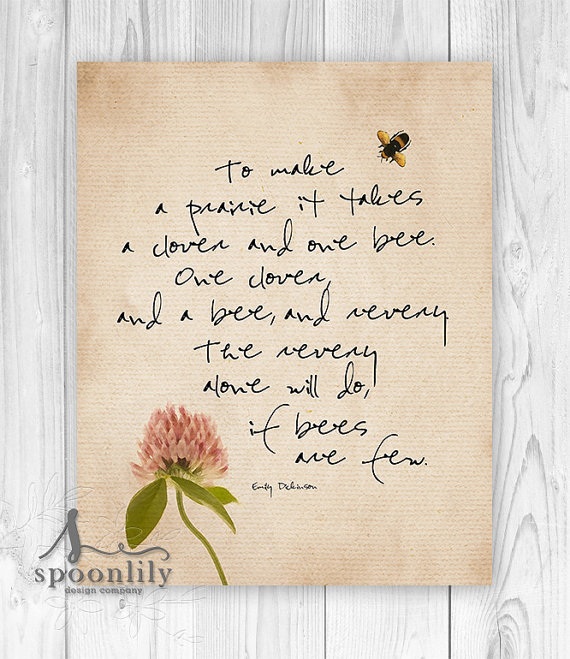 To make
a prairie it takes
a clover and one bee.
One clover,
and a bee, and revery
The revery
alone will do,
if bees
are few.
Emily Dickinson
spoonlily
design company